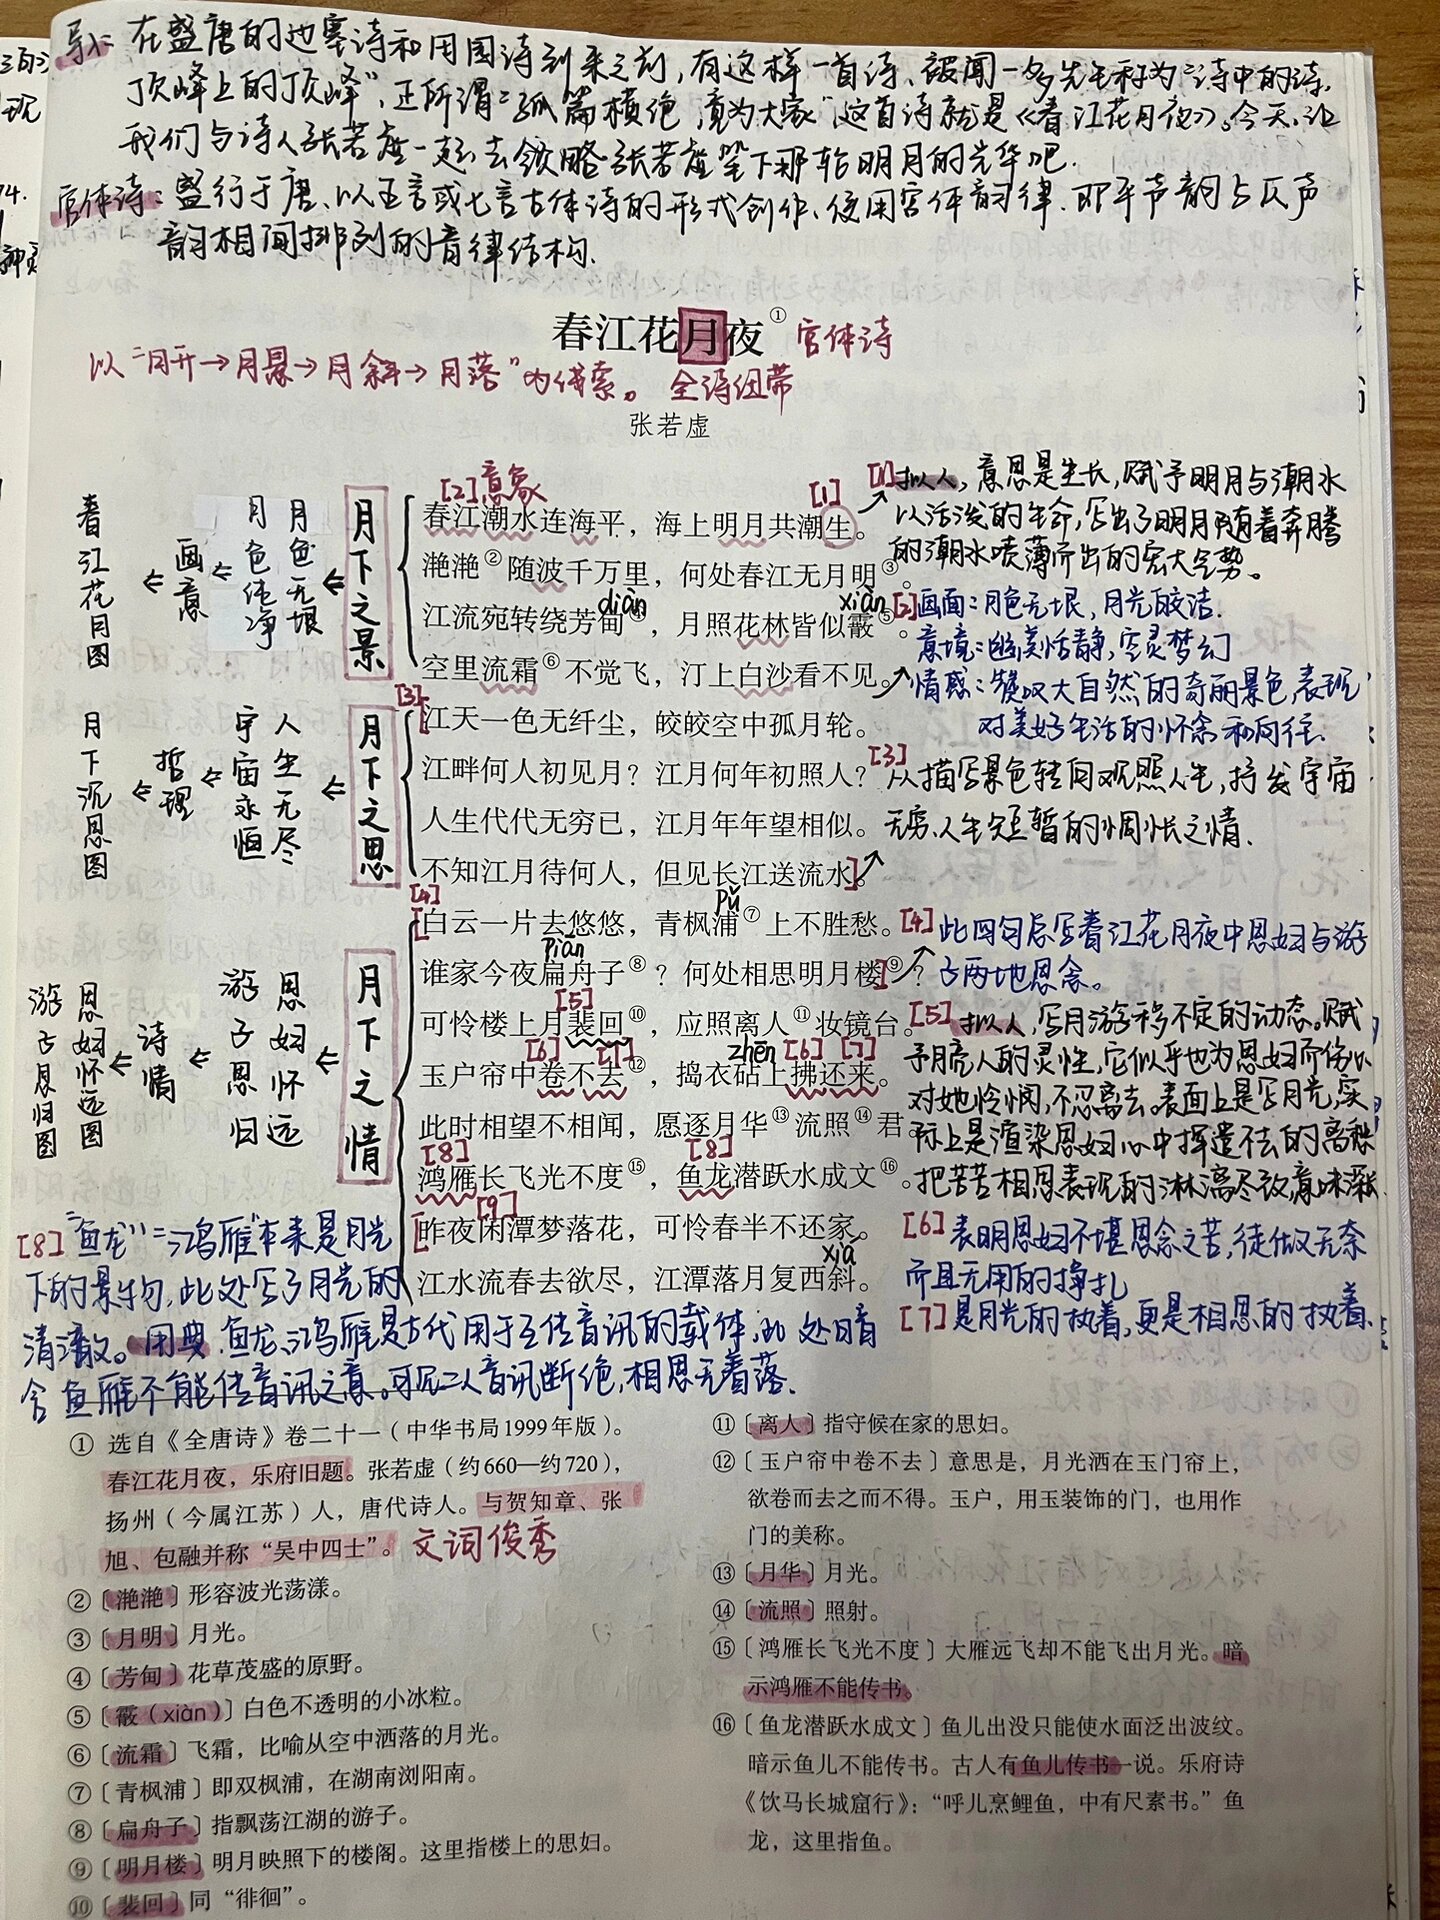 导入：在盛唐的边塞诗和田园诗到来之前，有这样一首诗、被闻一多先生称为“诗中的诗，
顶峰上的顶峰”，正所谓“孤篇横绝，竟为大家”，这首诗就是《春江花月夜》。今天，让
我们与诗人张若虚一起去领略张若虚笔下那轮明月的光华吧．
宫体诗：盛行于唐、以五言或七言古体诗的形式创作、使用宫体韵律．即平声韵与仄声
韵相间排列的音律结构．
春江花月夜① 宫体诗
以“月升→月悬→月斜→月落”为线索。 全诗纽带
张若虚
[2]意象 [1]
春江潮水连海平，海上明月共潮生。
滟滟②随波千万里，何处春江无月明③。
diàn xiàn
江流宛转绕芳甸④，月照花林皆似霰⑤。
空里流霜⑥不觉飞，汀上白沙看不见。
[3]
江天一色无纤尘，皎皎空中孤月轮。
江畔何人初见月？江月何年初照人？
人生代代无穷已，江月年年望相似。
不知江月待何人，但见长江送流水。
[4] pǔ
白云一片去悠悠，青枫浦⑦上不胜愁。
piān
谁家今夜扁舟子⑧？何处相思明月楼⑨？
[5]
可怜楼上月裴回⑩，应照离人⑪妆镜台。
[6] [7] zhēn [6] [7]
玉户帘中卷不去⑫，捣衣砧上拂还来。
此时相望不相闻，愿逐月华⑬流照⑭君。
[8] [8]
鸿雁长飞光不度⑮，鱼龙潜跃水成文⑯。
[9]
昨夜闲潭梦落花，可怜春半不还家。
xiá
江水流春去欲尽，江潭落月复西斜。
月下之景
月色无垠
月色纯净
画意
春江花月图
月下之思
人生无尽
宇宙永恒
哲理
月下沉思图
月下之情
思妇怀远
游子思归
诗情
思妇怀远图
游子思归图
[1]拟人，意思是生长，赋予明月与潮水
以活泼的生命，写出了明月随着奔腾
的潮水喷薄而出的宏大气势。
[2]画面：月色无垠，月光皎洁．
意境：幽美恬静，空灵梦幻
情感：赞叹大自然的奇丽景色，表现
对美好生活的怀念和向往．
[3]从描写景色转向观照人生，抒发宇宙
无穷、人生短暂的惆怅之情．
[4]此四句总写春江花月夜中思妇与游
子两地思念。
[5]拟人，写月游移不定的动态。赋
予月亮人的灵性，它似乎也为思妇而伤心
对她怜悯，不忍离去。表面上是写月光，实
际上是渲染思妇心中挥遣不去的离愁
把苦苦相思表现的淋漓尽致，意味深长．
[6]表明思妇不堪思念之苦，徒做又无奈
而且无用的挣扎
[7]是月光的执着，更是相思的执着．
[8]“鱼龙”“鸿雁”本来是月光
下的景物，此处写了月光的
清澈。用典．鱼龙、鸿雁是古代用于互传音讯的载体，此处暗
含鱼雁不能传音讯之意。可见二人音讯断绝，相思无着落．
① 选自《全唐诗》卷二十一（中华书局1999年版）。
春江花月夜，乐府旧题。张若虚（约660—约720），
扬州（今属江苏）人，唐代诗人。与贺知章、张
旭、包融并称“吴中四士”。 文词俊秀
②〔滟滟〕形容波光荡漾。
③〔月明〕月光。
④〔芳甸〕花草茂盛的原野。
⑤〔霰（xiàn）〕白色不透明的小冰粒。
⑥〔流霜〕飞霜，比喻从空中洒落的月光。
⑦〔青枫浦〕即双枫浦，在湖南浏阳南。
⑧〔扁舟子〕指飘荡江湖的游子。
⑨〔明月楼〕明月映照下的楼阁。这里指楼上的思妇。
⑩〔裴回〕同“徘徊”。
⑪〔离人〕指守候在家的思妇。
⑫〔玉户帘中卷不去〕意思是，月光洒在玉门帘上，
欲卷而去之而不得。玉户，用玉装饰的门，也用作
门的美称。
⑬〔月华〕月光。
⑭〔流照〕照射。
⑮〔鸿雁长飞光不度〕大雁远飞却不能飞出月光。暗
示鸿雁不能传书。
⑯〔鱼龙潜跃水成文〕鱼儿出没只能使水面泛出波纹。
暗示鱼儿不能传书。古人有鱼儿传书一说。乐府诗
《饮马长城窟行》：“呼儿烹鲤鱼，中有尺素书。”鱼
龙，这里指鱼。